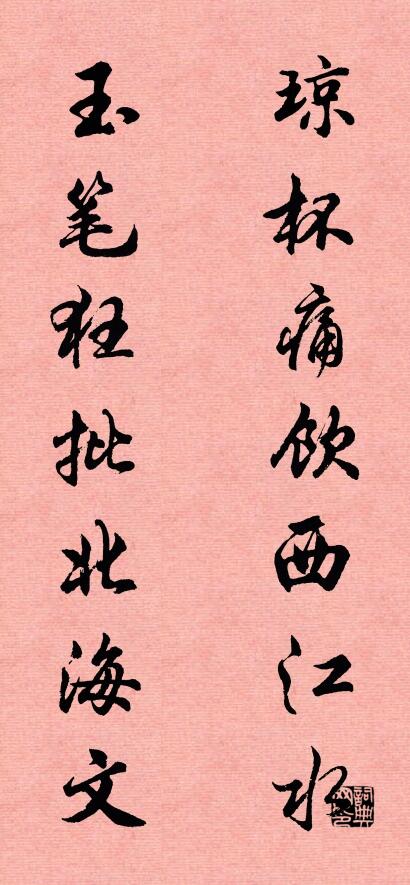 琼杯痛饮西江水
玉笔狂批北海文